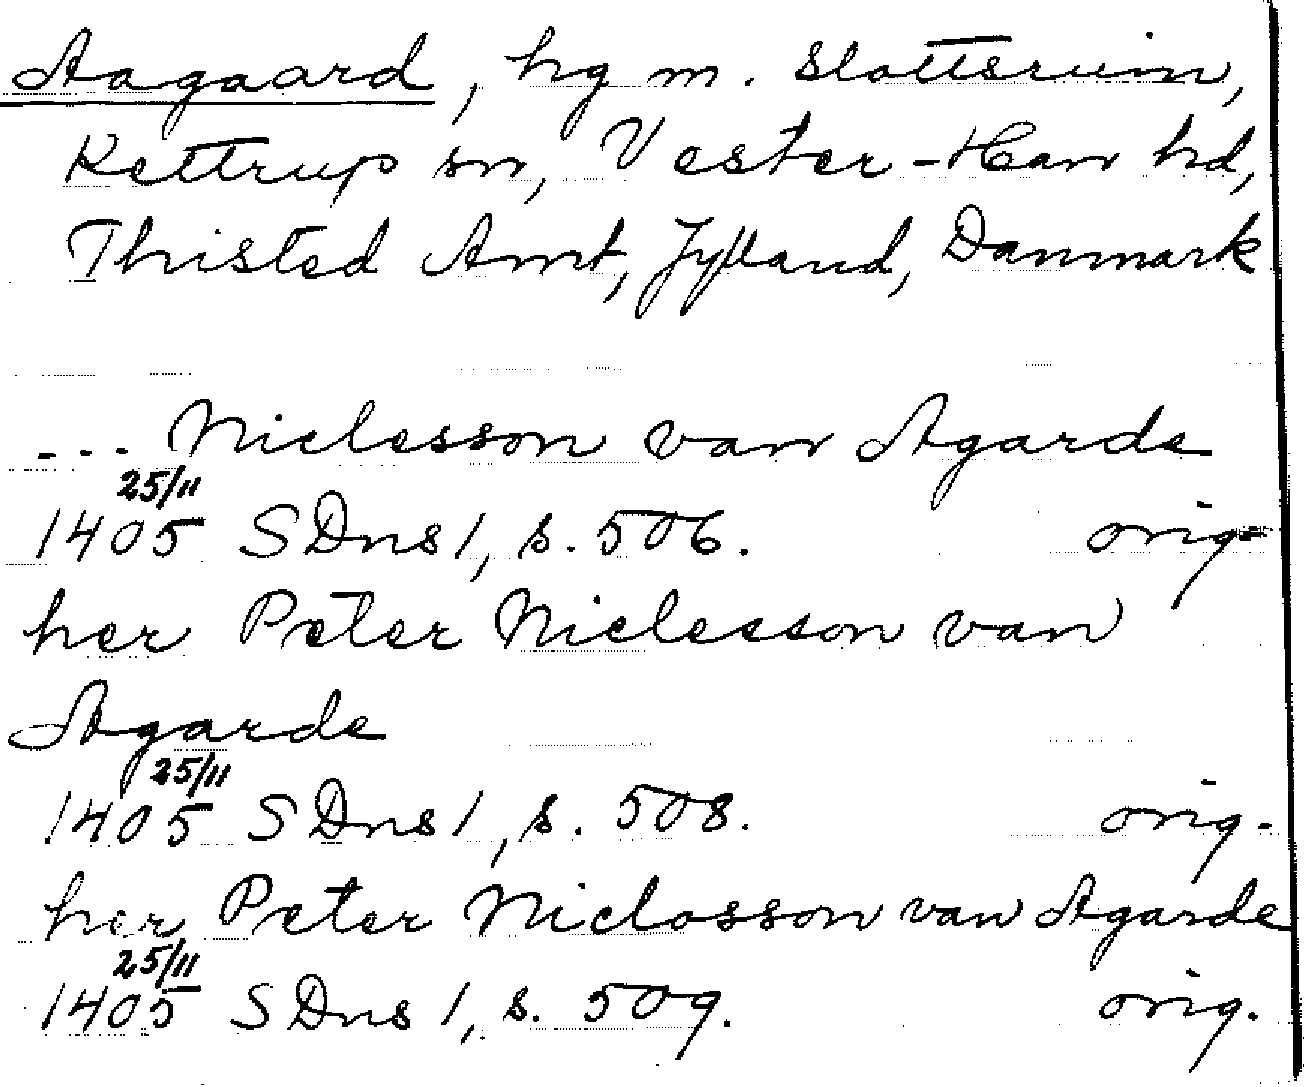 Aagaard, hg m. Slottsruin,
Kettrup sn, Vester-Han hd,
Thisted Amt, Jylland, Danmark
... Niclesson van Agarde
25/11
1405 SDns 1, s. 506. orig.
her Peter Niclesson van
Agarde
25/11
1405 SDns 1, s. 508. orig.
her Peter Niclosson van Agarde
25/11
1405 SDns 1, s. 509. orig.